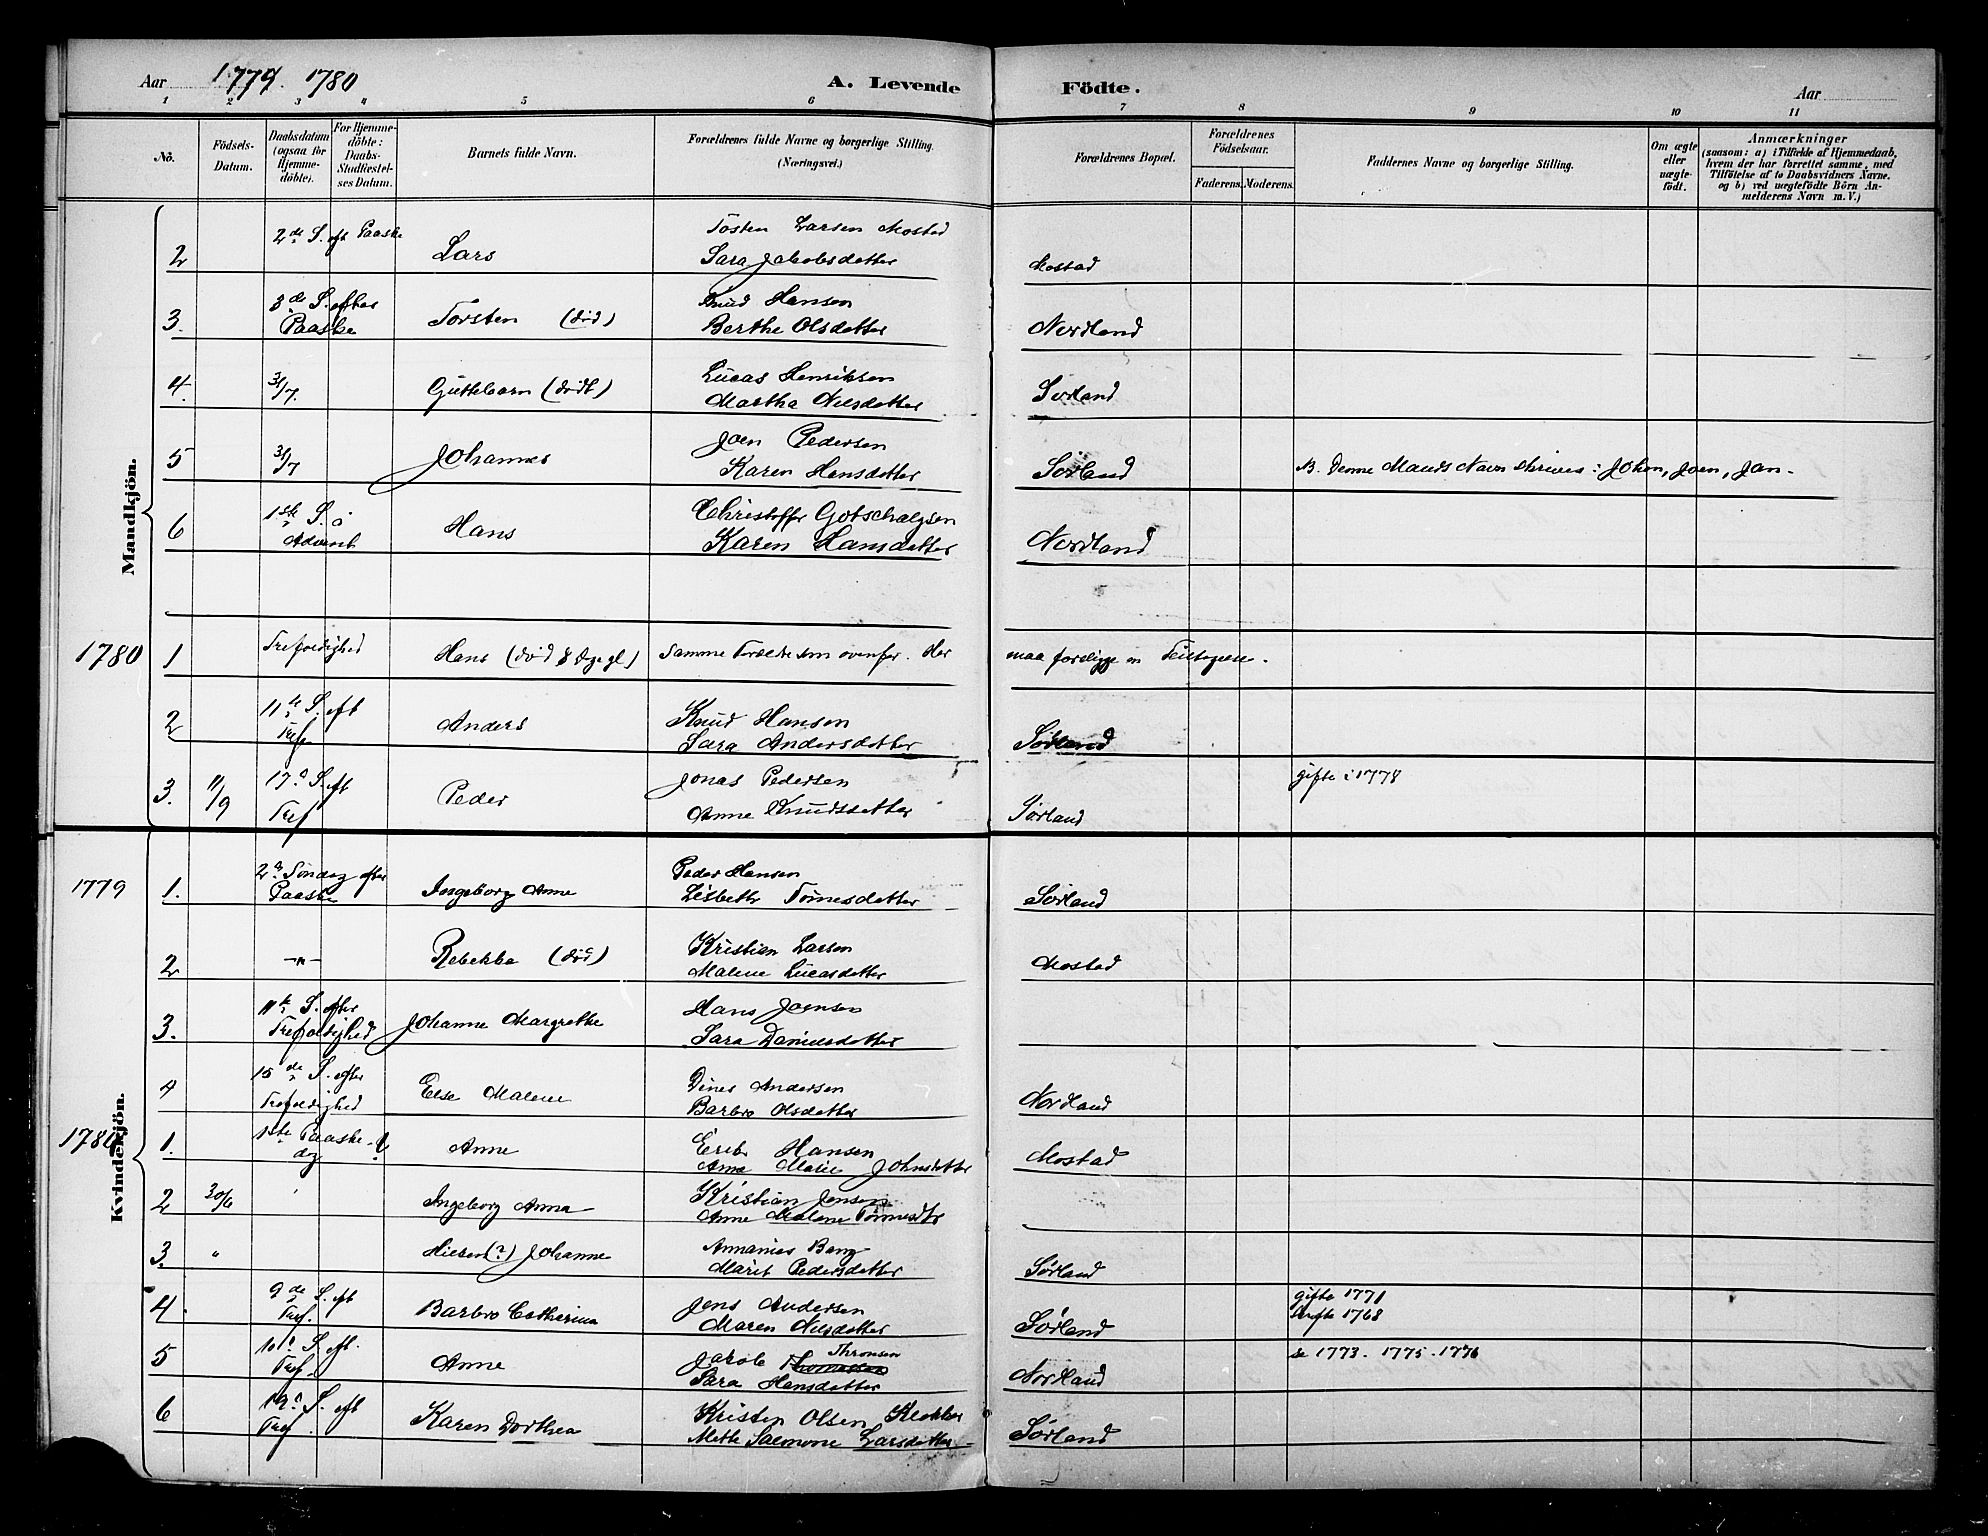 Aar 1779. 1780
A. Levende Födte.
Aar
1 2 3 4 5 6 7 8 9 10 11
No.
Födsels-Datum.
Daabsdatum (ogsaa for Hjemmedöbte).
For Hjemmedöbte: Daabs-Stadfæstelses Datum.
Barnets fulde Navn.
Forældrenes fulde Navne og borgerlige Stilling. (Næringsvei.)
Forældrenes Bopæl.
Forældrenes Födselsaar.
Faderens. Moderens.
Faddernes Navne og borgerlige Stilling.
Om ægte eller uægte födt.
Anmærkninger
(saasom: a) i Tilfælde af Hjemmedaab, hvem der har forrettet samme, med Tilföielse af to Daabsvidners Navne. og b) ved uægtefödte Börn Anmelderens Navn m. V.)
Mandkjön.
2 2de S. eft Paaske Lars Tosten Larsen Mostad
Sara Jakobsdatter Mostad
3. 3de S. efter Paaske Torsten (död) Knud Hansen
Berthe Olsdatter Nordland
4. 31/7. Guttebarn (dödt) Lucas Henriksen
Martha Nilsdatter Sorland
5 31/7 Johannes Joen Pedersen
Karen Hansdatter Sorland NB. Denne Mands Navn skrives: Johan, Joen, Jan.
6 1ste S. i Advent Hans Christoffer Gotschalgsen
Karen Hansdatter Nordland
1780 1 Trefoldighed Hans (död 8 dage gl) Samme Foreldre som ovenfor. Her maa foreligge en Feiltagelse.
2 11te S. eft Tref Anders Knud Hansen
Sara Andersdatter Sörland
3. 11/9 17. S. eft Tref Peder Jonas Pedersen
Anne Knudsdatter Sørland gifte i 1778
Kvindekjön.
1779 1. 2. Söndag efter Paaske Ingeborg Anne Peder Hansen
Lisbeth Tönnesdatter Sörland
2 -"- Rebekka (död) Kristian Larsen
Malene Lucasdatter Mostad
3. 11te S. efter Trefoldighed Johanne Margrethe Hans Joensen
Sara Danielsdatter
4 15de S. efter Trefoldighed Else Malene Dines Andersen
Barbro Olsdatter Nordland
1780 1. 1ste Paaskedag Anne Erik Hansen
Ane Marie Johnsdatter Mostad
2 30/6 Ingeborg Anna Kristian Jensen
Anne Malene Tönnesdtr
3. " (?) Johanne Annanias Bang
Marit Pedersdatter Sørland
4. 9de S. eft Tref. Barbro Catharina Jens Andersen
Maren Nilsdatter Sørland gifte 1771
1768
5 10. S. eft. Tref. Anne Jacob Thomassen Thronsen
Sara Hansdatter Nordland se 1773. 1775. 1776
6 19. S. eft Tref Karen Dorthea Kristen Olsen Klokker
Mette Salmone Larsdatter Sørland